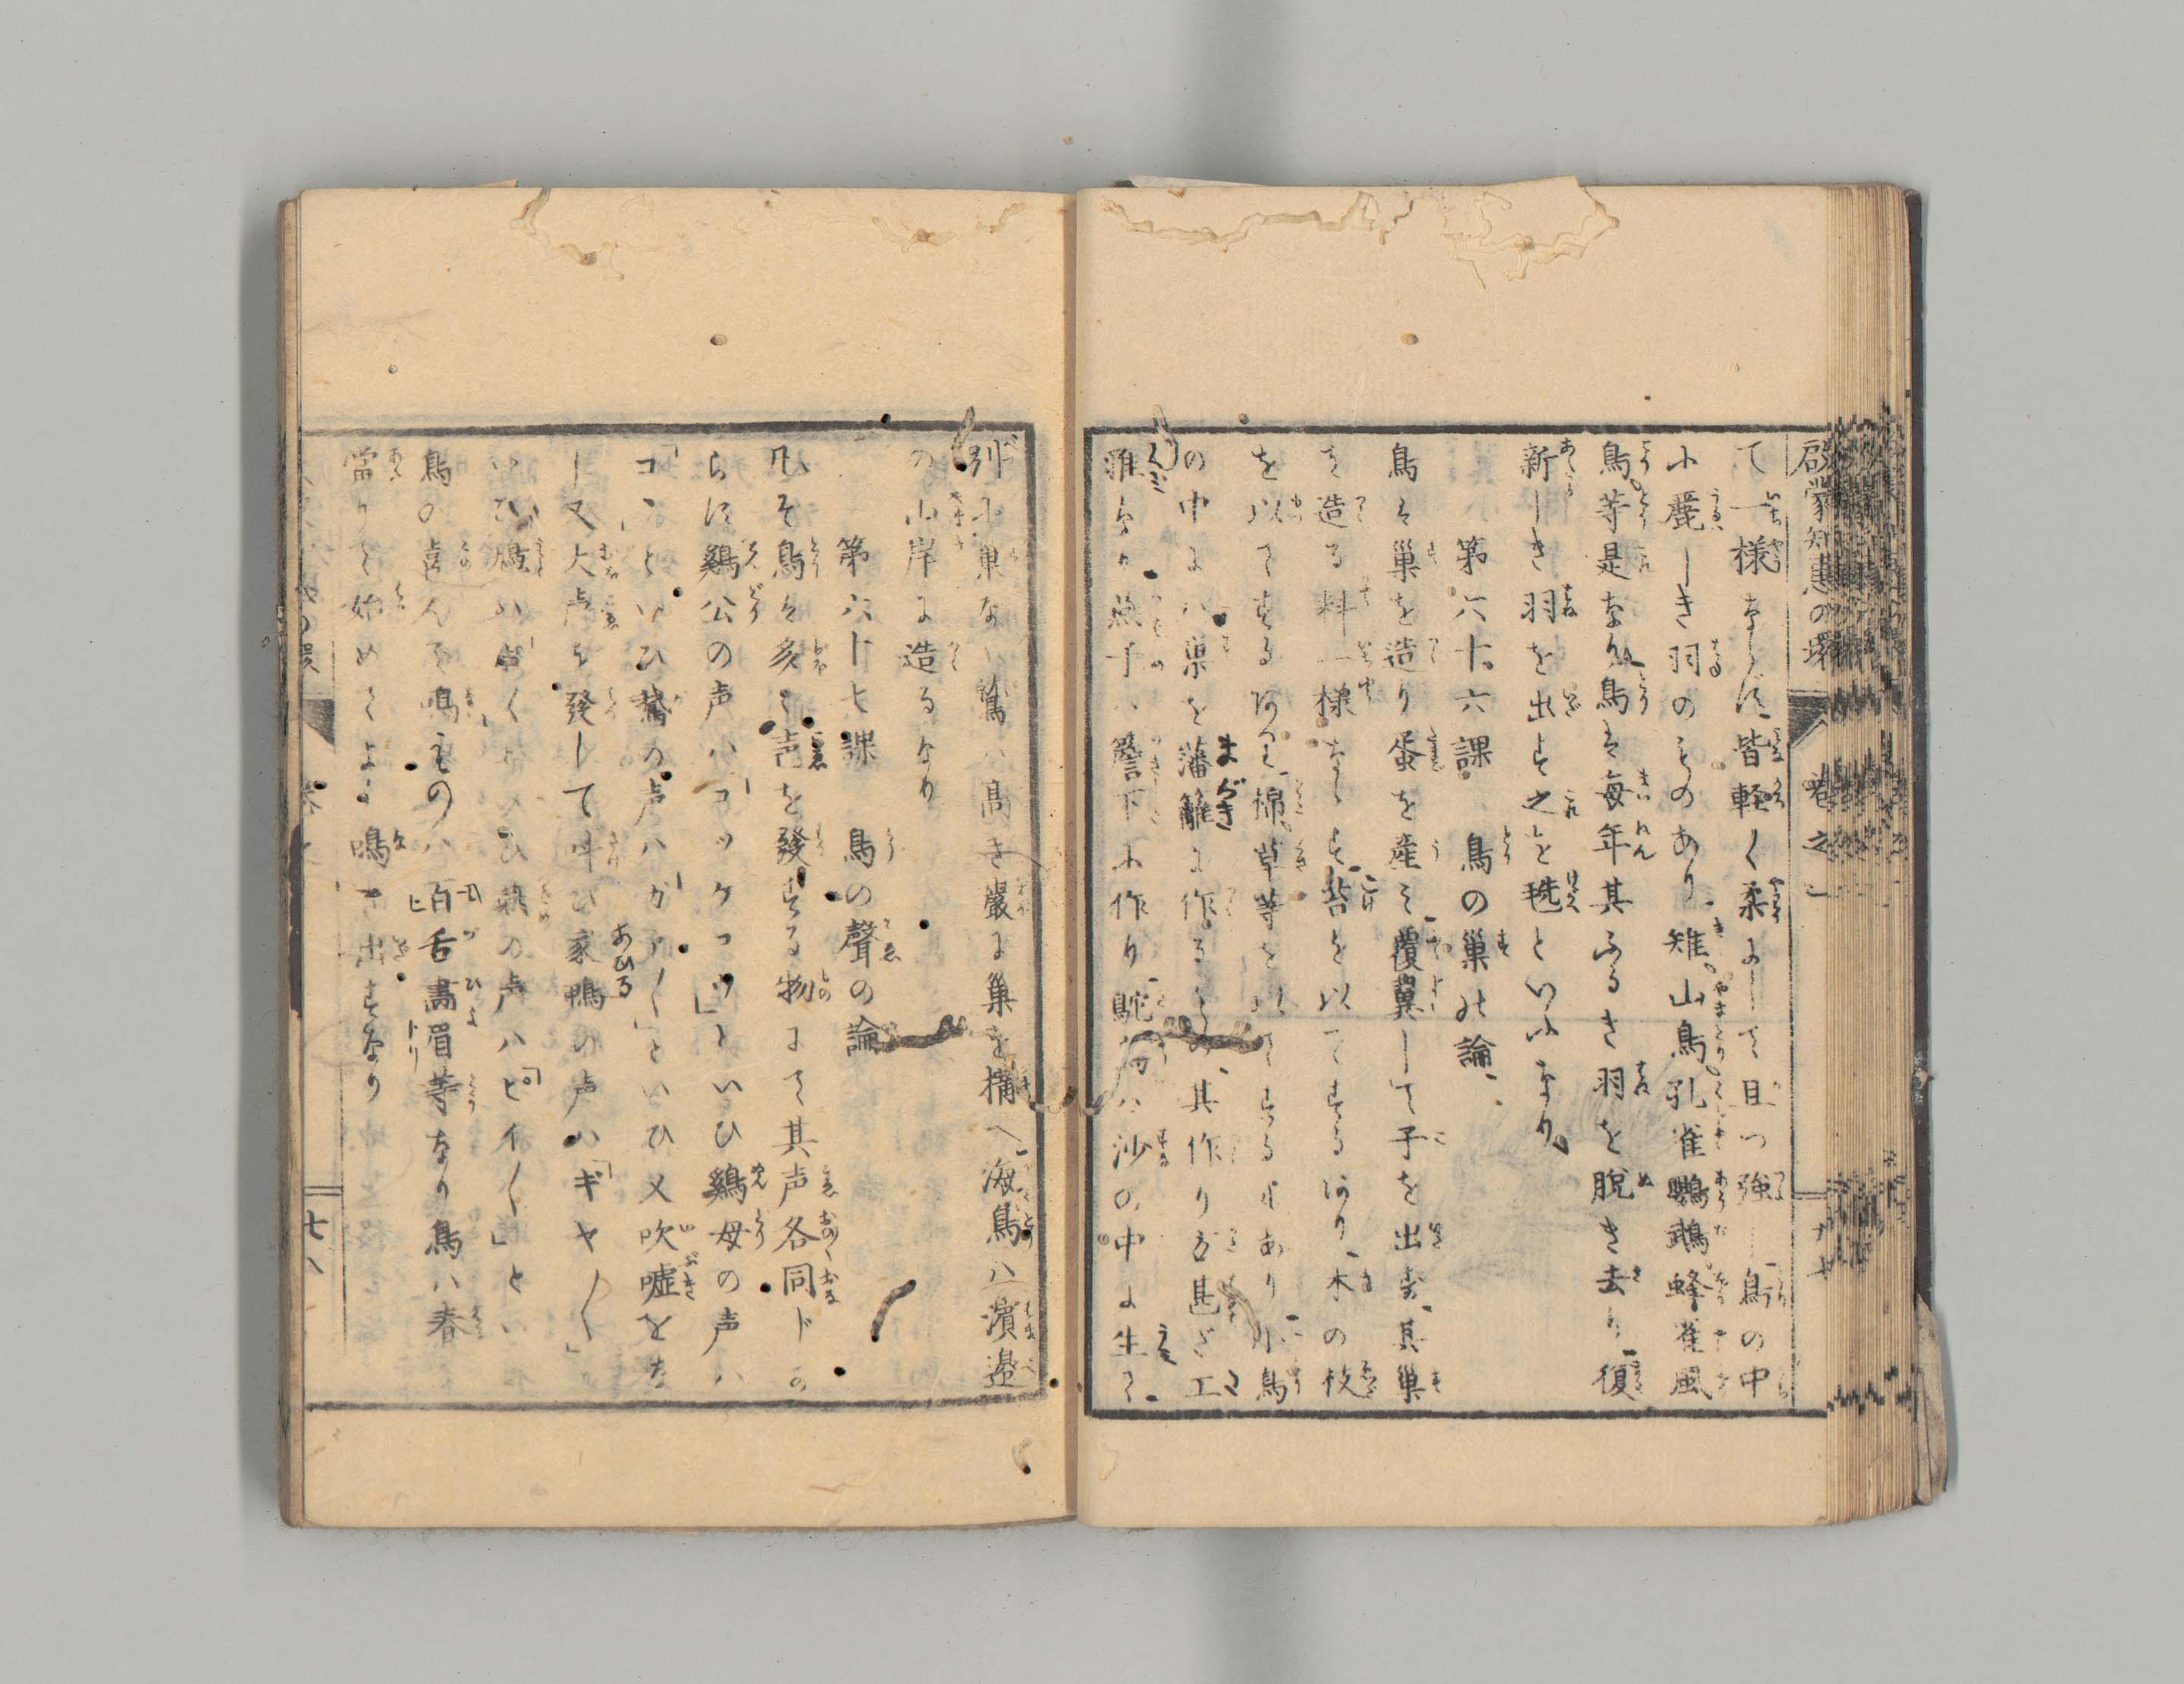 啓蒙知恵の環 巻之一
て一様ならず皆軽く柔にして且つ強し鳥の中
小麗しき羽のものあり雉、山鳥、孔雀鸚鵡蜂雀風
鳥等是なり鳥は毎年其ふるき羽を脱き去り復
新しき羽を出す之を毨といふなり
第六十六課 鳥の巣の論
鳥は巣を造り蛋を産み覆翼して子を出す其巣
を造る料一様ならず苔を以てするあり木の枚
を以てするあり、棉、草等を以てするもあり小鳥
の中には巣を藩籬に作るもの、其作り方甚ざ工
なり燕子ハ簷下に作り鴕鳥ハ沙の中に生て
別に巣なし鷲ハ高き巌に巣を構へ海鳥ハ濱邊
の山岸に造るなり
第六十七課 鳥の聲の論
凡そ鳥は多く声を發する物にて其声各同ドか
らず鷄公の声ハ「コッケコッ」といひ鷄母の声ハ
「コヽ」といひ鵞の声ハ「ガア〳〵」といひ又吹嘘をな
し又大声を發して叫び家鴨の声ハ「ギヤ〳〵」
の声ハ「ピイ〳〵」とい
鳥の喜んで鳴ものハ百舌畵眉等なり鳥ハ春
當りて始めてよく鳴き出すなり